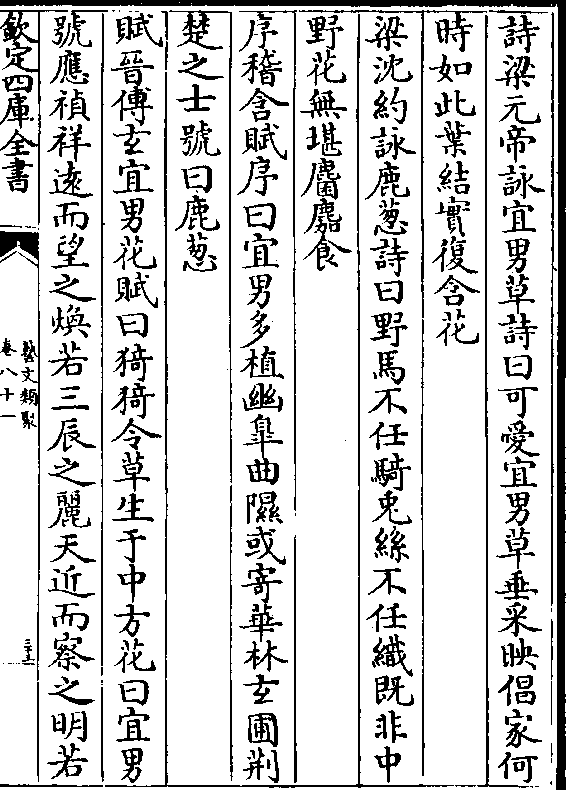 詩梁元帝詠宜男草詩曰可愛宜男草垂采映倡家何
時如此葉結實復含花
梁沈約詠鹿葱詩曰野馬不任騎兎絲不任織既非中
野花無堪麕麚食
序稽含賦序曰宜男多植幽臯曲隰或寄華林玄圃荆
楚之士號曰鹿葱
賦晉傅玄宜男花賦曰猗猗令草生于中方花曰宜男
號應禎祥遠而望之煥若三辰之麗天近而察之明若
欽定四庫全書
藝文類聚
卷八十一
三十五